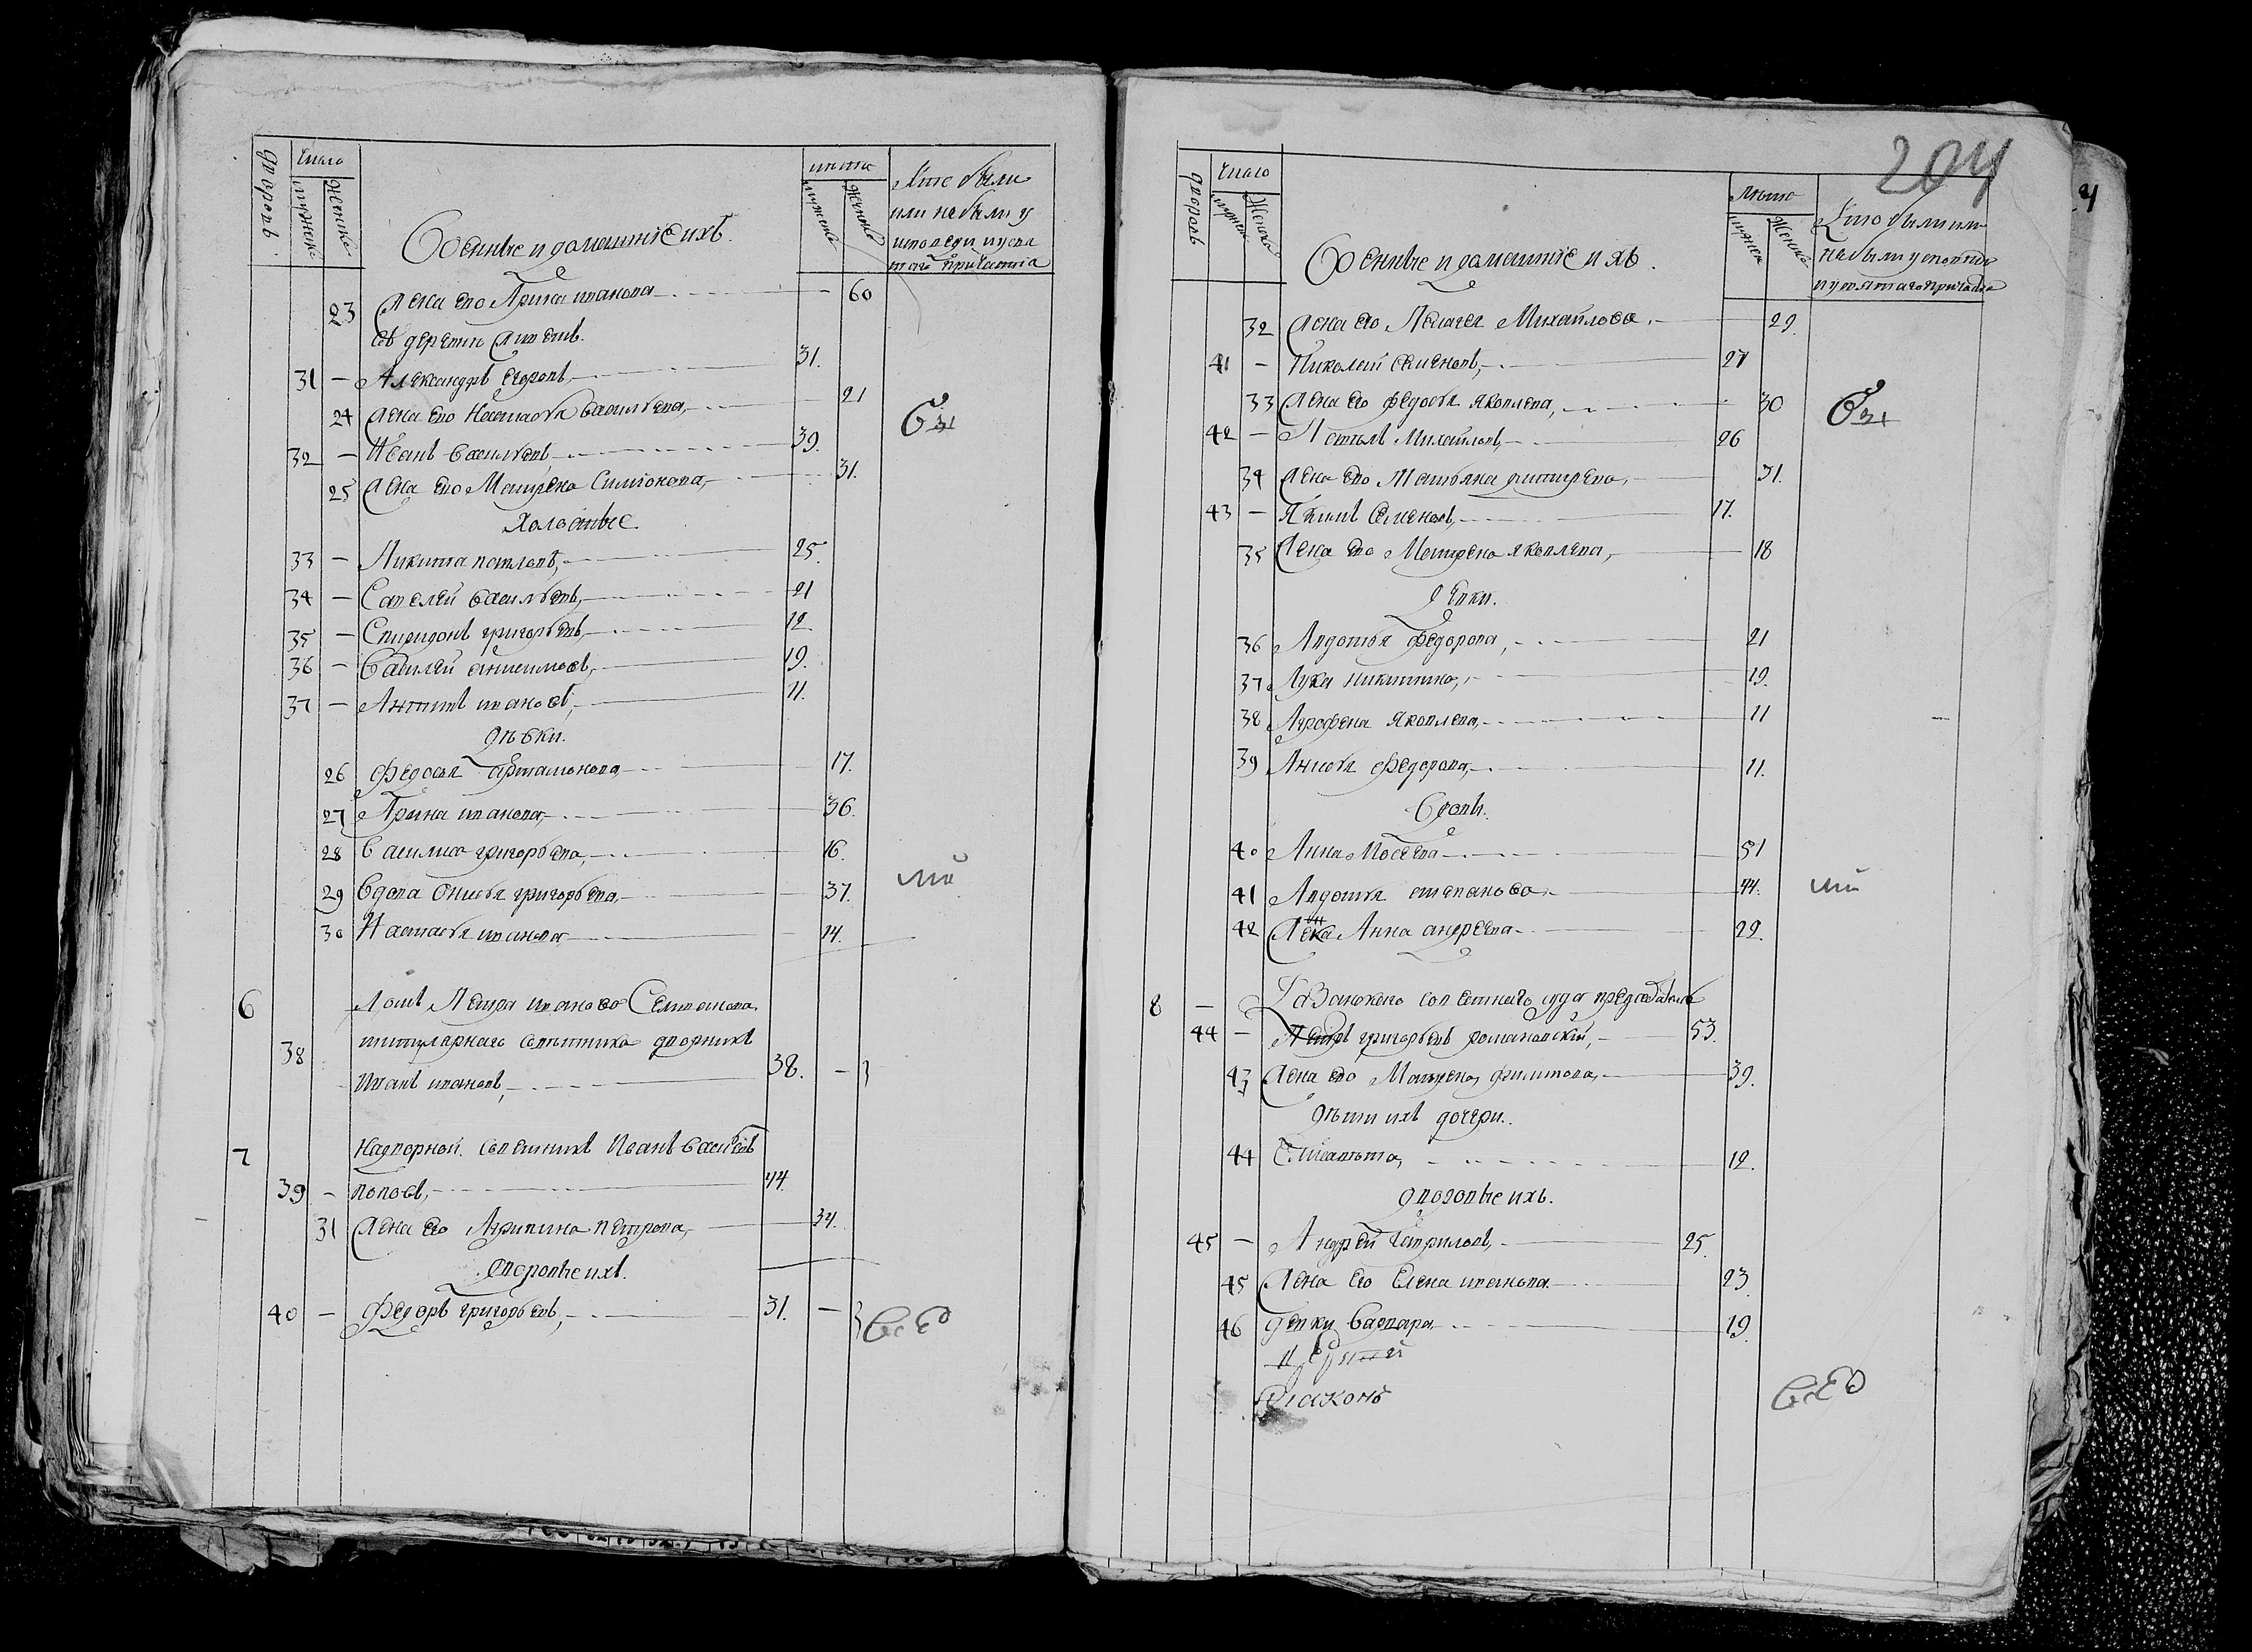 дворовъ
Число
мужеска
Женска
Военные и домашние ихъ.
лета
мужеска
Женска
Кто были
или не были у
исповеди и свя
таго причастiа
23 Жена его Арина иванова 60
31 — Александръ Егоровъ, 31.
24 Жена его Настасья васильева, 21
32 — Иванъ васильевъ, 39.
25 Жена его Матрена Симионова, 31.
Холостые
33 — Никита павловъ, 25.
34 — Савелей васильевъ, 21
35 — Спиридонъ григорьевъ, 12
36 — Василей анисимовъ, 19.
37 — Антипъ ивановъ, 11.
дѣвки.
26 Федосья артамонова 17.
27 Арина иванова, 36.
28 Василиса григорьева, 16.
29 Вдова Анисья григорьева, 37.
30 Настасья иванова 14.
6 Домъ Петра иванова Селиванова
38 титулярнаго советника дворникъ
Иванъ ивановъ, 38. —
7 Надворной советникъ Иванъ васильевъ
39 — поповъ, 44.
31 Жена его Агрипина петрова, 34.
дворовые ихъ.
40 — Федоръ григорьевъ, 31. —
204
дворовъ
Число
мужеска
Женска
Военные и домашние ихъ.
Лета
мужеска
Женска
Кто были или
не были у исповеди
и у святаго причастiя
32 Жена его Пелагея Михайлова, 29.
41 — Николай Семеновъ, 27
33 Жена его федосья яковлева, 30
42 — Павелъ Михайловъ, 26
34 Жена его Татьяна дмитрева, 31.
43 — Якимъ Семеновъ, 17.
35 Жена его Матрена яковлева, 18
девки.
36 Авдотья Федорова, 21
37 Лукья никитина, 19.
38 Агрофена Яковлева, 11
39 Анисья Федорова, 11.
Вдовы.
40 Анна Мосеева 51
41 Авдотья степанова 44.
42 Жена Анна андреева 22.
8 —
44 — Петръ григорьевъ романовский, 53.
43 Жена его Матрена филипова, 39.
дѣти ихъ дочери.
44 Елисавета, 12.
дворовые ихъ.
45 — Андрей Гавриловъ, 25.
45 Жена его Елена иванова 23
46 девки Варвара 19.
Дiаконъ